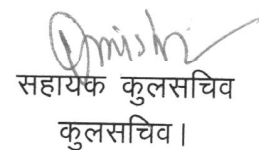 सहायक कुलसचिव
कुलसचिव।